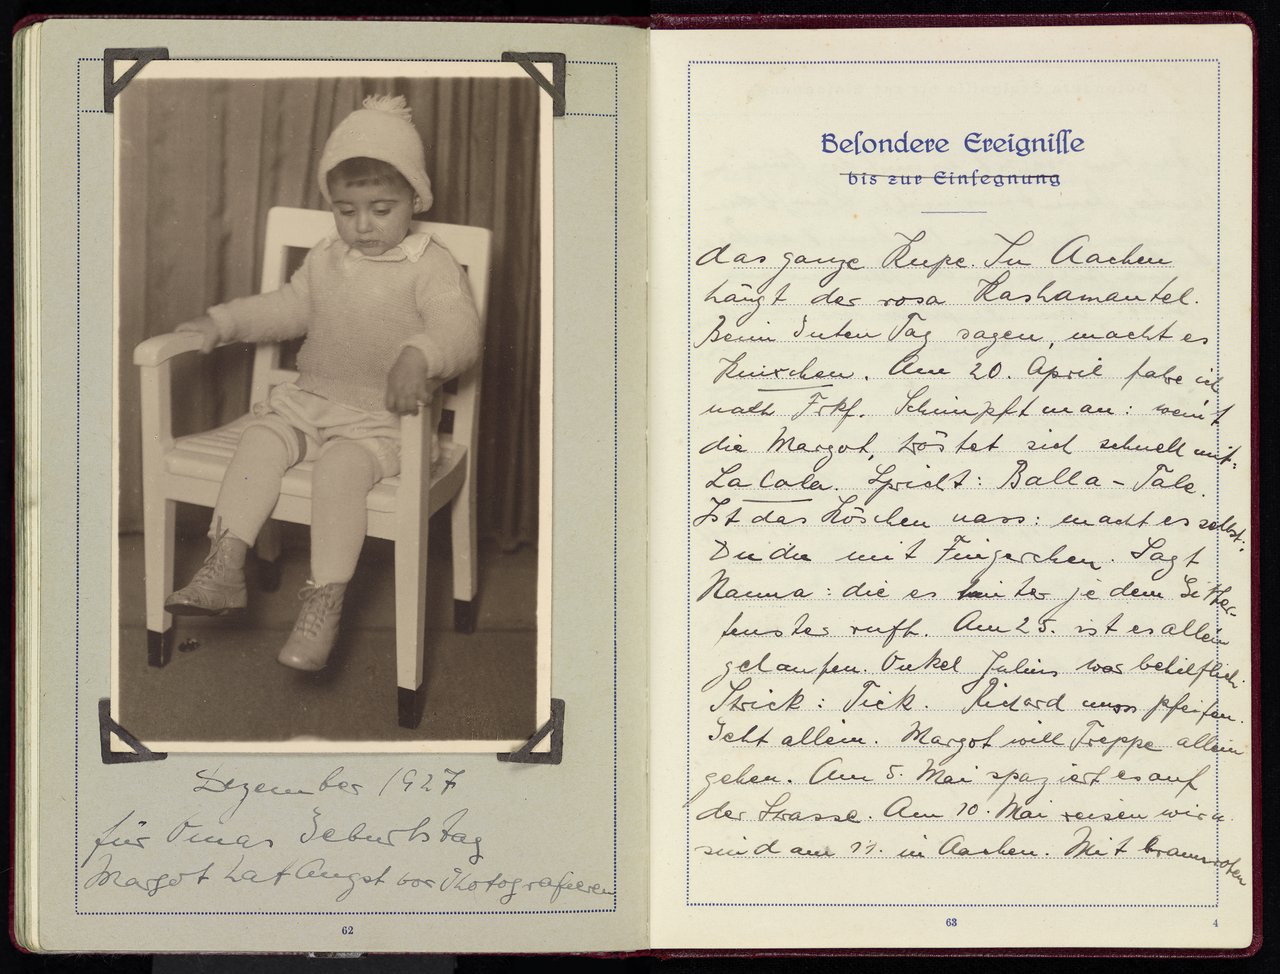 Dezember 1927
für Omas Geburtstag
Margot hat Angst vor Photografieren
62
Besondere Ereignisse
bis zur Einsegnung
das ganze In Aachen
hängt der rosa Kashamantel.
Beim Guten Tag sagen, macht es
Knixchen. Am 20. April fahre ich
nach Frkf. Schimpft man: weint
die Margot, tröstet sich schnell mit:
La la la. Spricht: Balla - Tale.
Ist das Höschen nass: macht es selbst:
Du du mit Fingerchen. Sagt
Nanna: die es hinter je dem Gitter-
fenster ruft. Am 25. ist es allein
gelaufen. Onkel Julius war behilflich.
Strick: Tick. Richard muss pfeifen.
Geht allein. Margot will Treppe allein
gehen. Am 5. Mai spaziert es auf
der Strasse. Am 10. Mai reisen wir u.
sind am 11. in Aachen. Mit braunroten
63
4